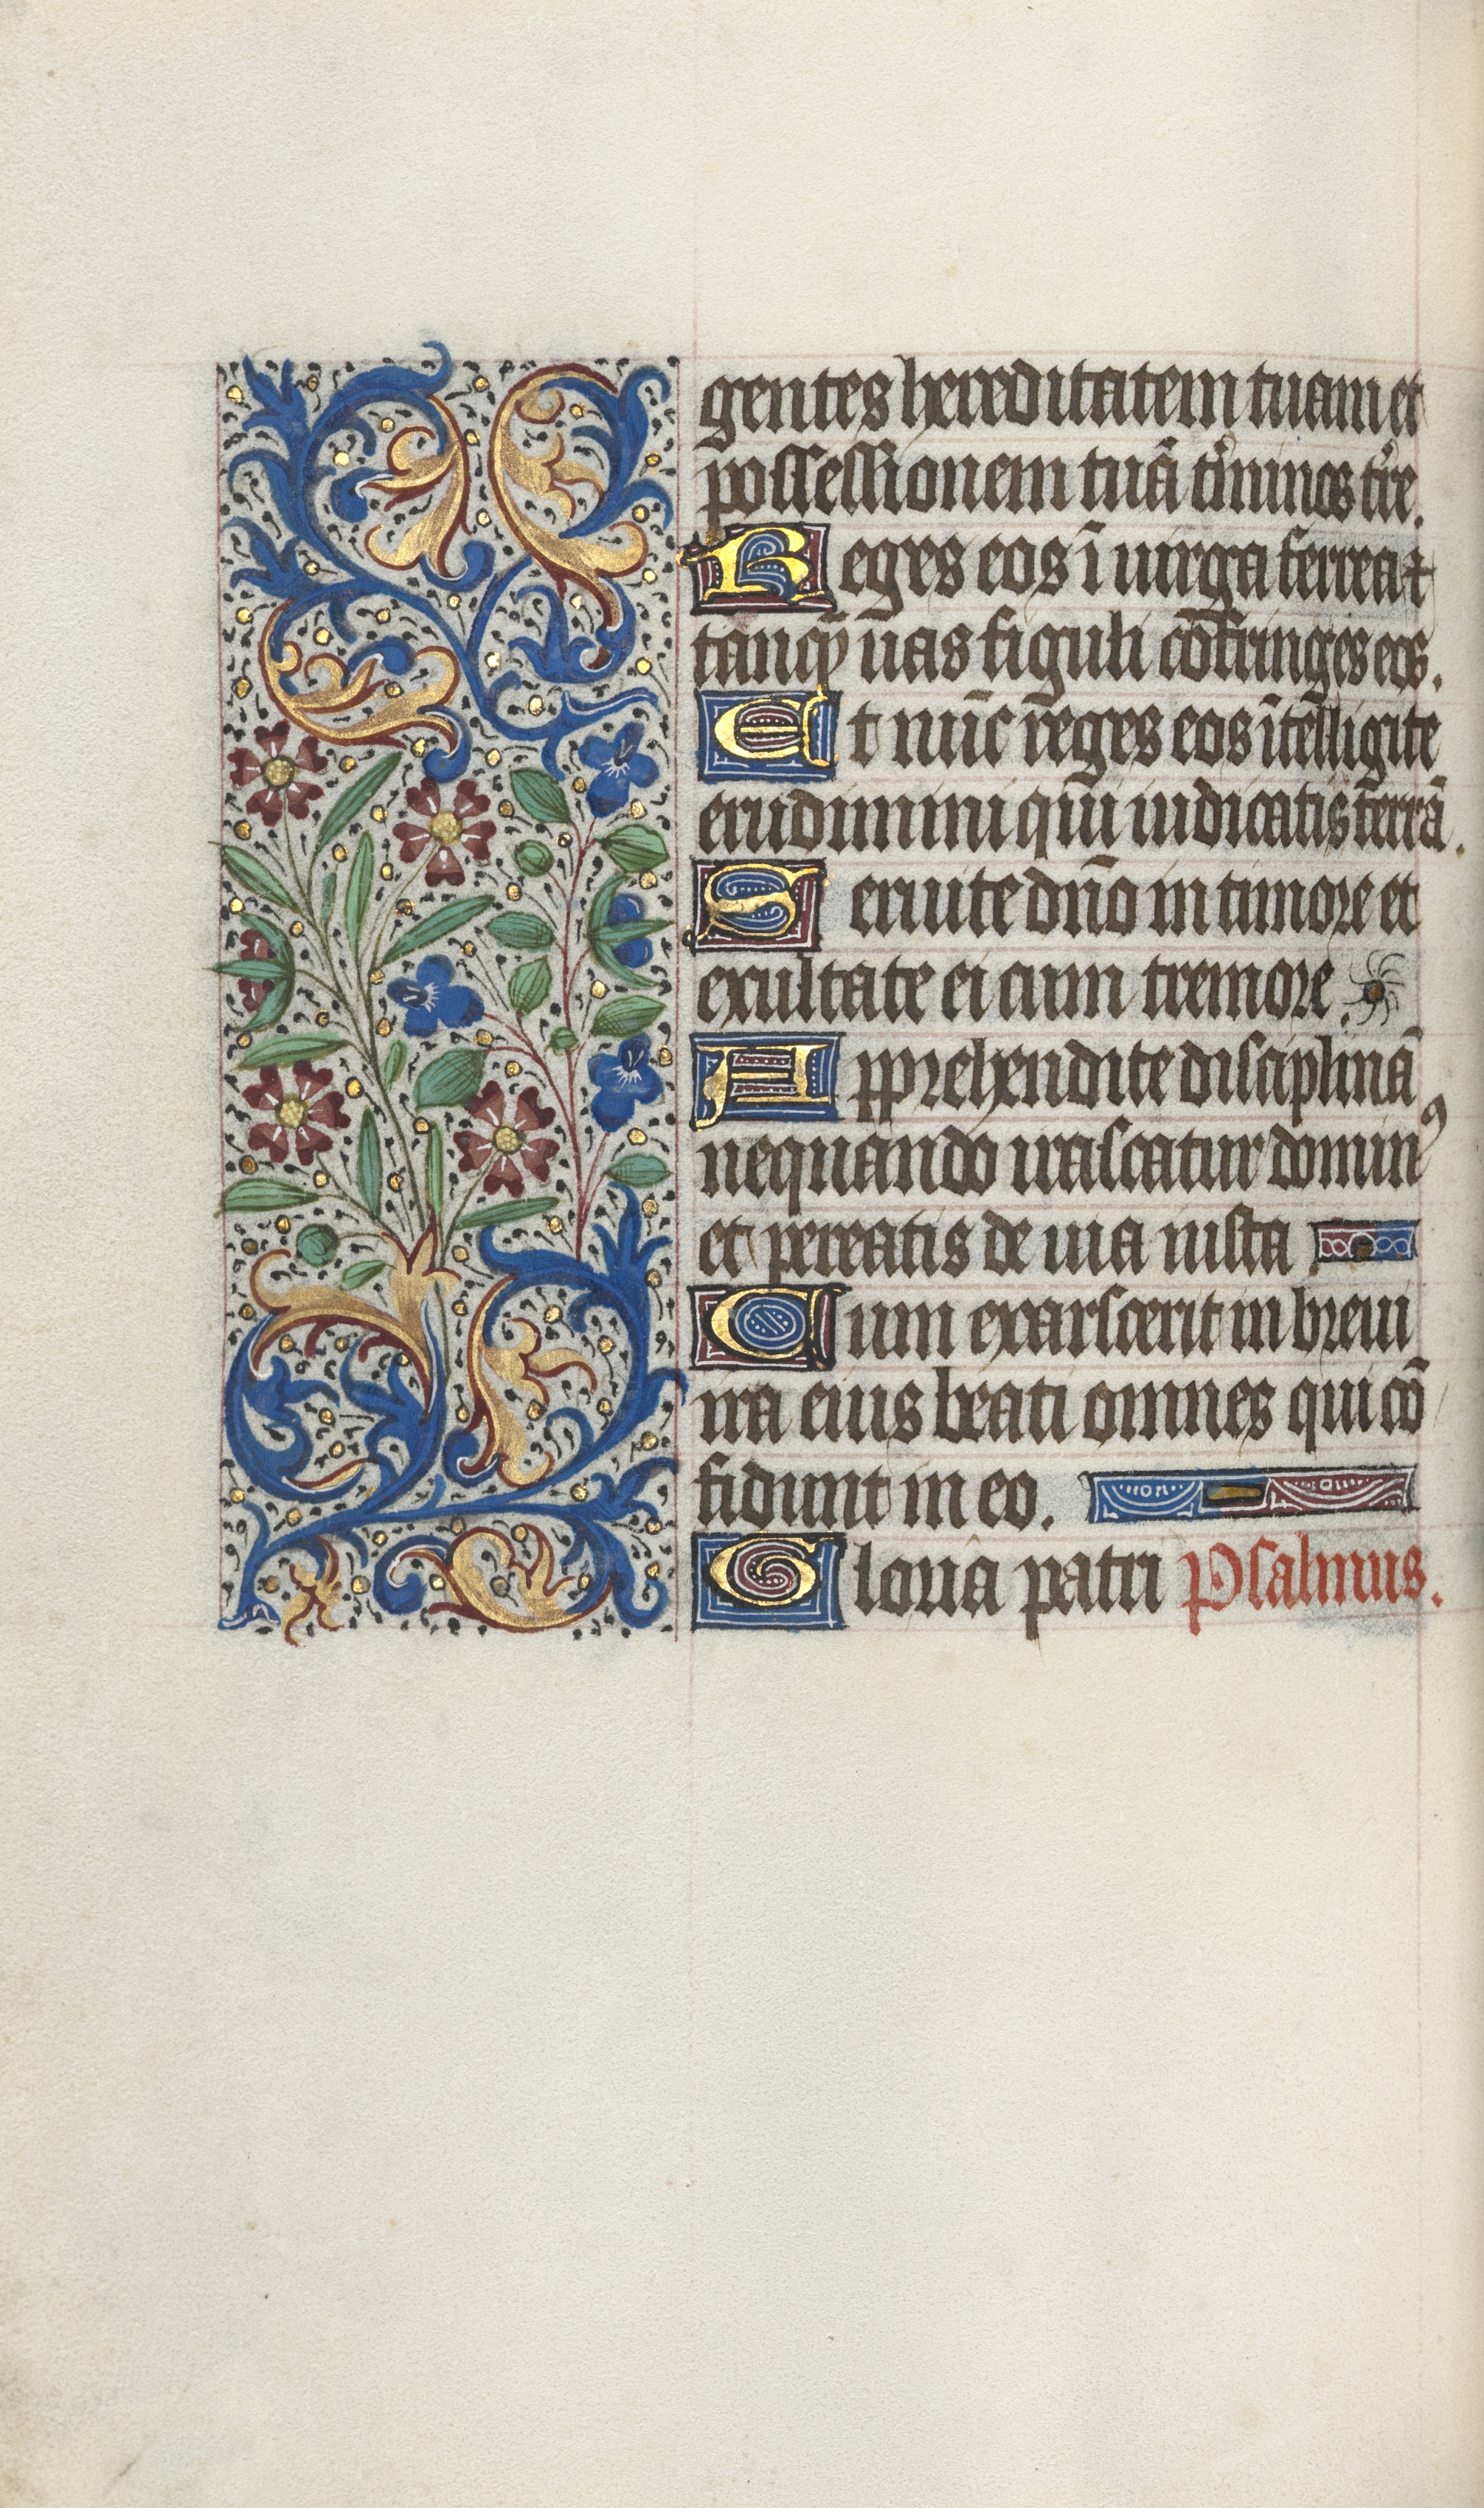 gentes hereditatem tuam et
possessionem tuā t'minos t're.
Reges eos ī uirga ferrea et
tanq̄ uas figuli cōfringes eos.
Et nūc reges eos ītelligite
erudimini qui iudicatis terrā.
Seruite dn̄o in timore et
exultate ei cum tremore.
Apprehendite disciplinā
nequando irascatur dominꝰ
et pereatis de uia iusta
Cum exarscerit in breui
ira eius beati omnes qui cō
fidunt in eo.
Gloria patri Psalmus.